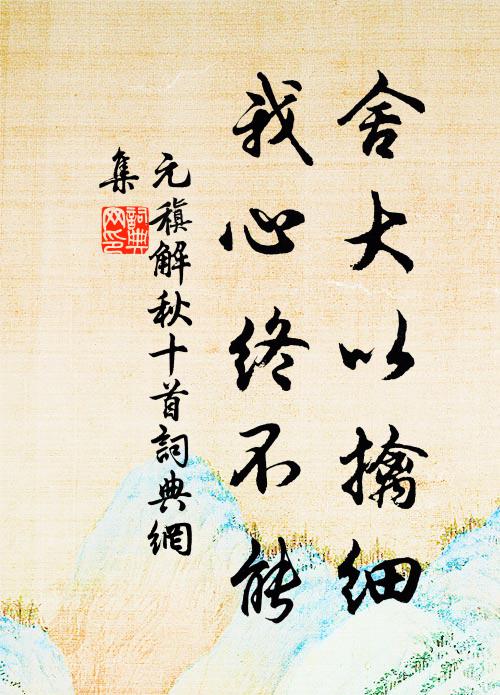 舍大以擒細
我心終不能
元稹解秋十首詞典網
集
詞典網印